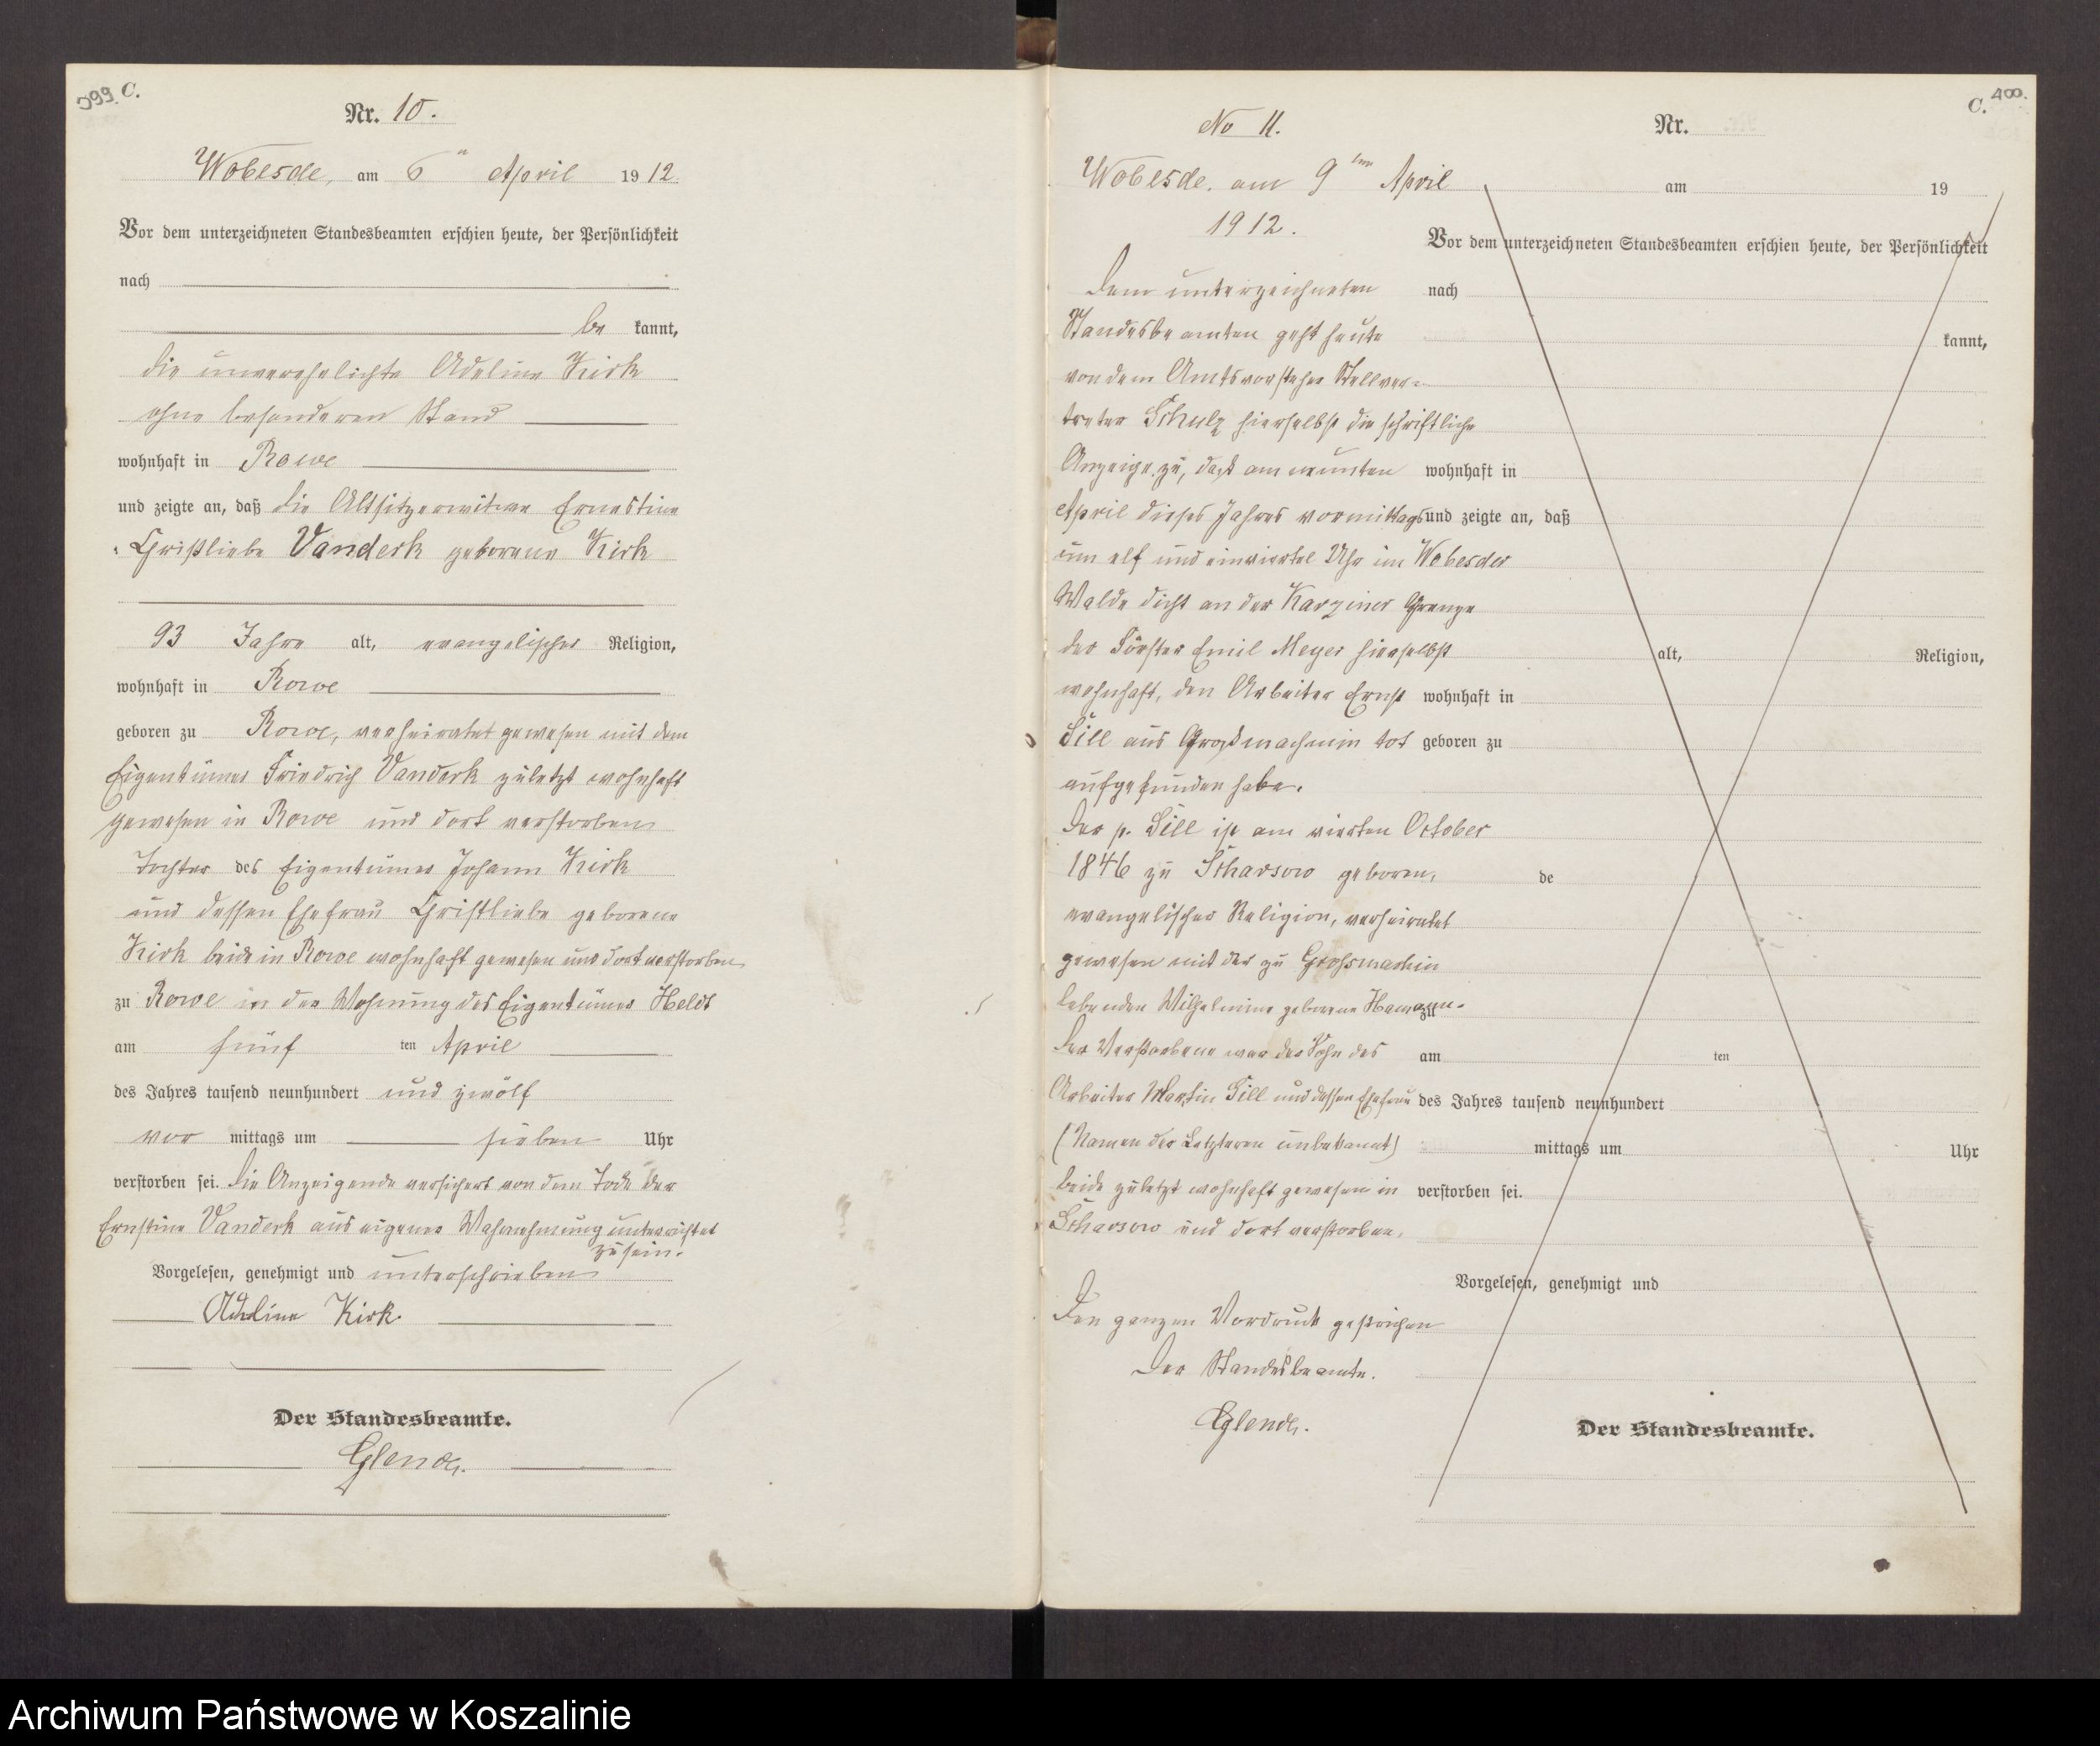 399. C.
Nr. 10.
Wobesde, am 6ten April 1912
Vor dem unterzeichneten Standesbeamten erschien heute, der Persönlichkeit
nach
be kannt,
die unverehelichte Adeline Kirk
ohne besonderen Stand
wohnhaft in Rowe
und zeigte an, daß die Altsitzerwitwe Ernestine
Christliebe Vanderk geborene Kirk
93 Jahre alt, evangelischer Religion,
wohnhaft in Rowe
geboren zu Rowe, verheiratet gewesen mit dem
Eigentümer Friedrich Vanderk zuletzt wohnhaft
gewesen in Rowe und dort verstorben
Tochter des Eigentümer Johann Kirk
und dessen Ehefrau Christliebe geborene
Kirk beide in Rowe wohnhaft gewesen und dort verstorben
zu Rowe in der Wohnung des Eigentümer Heldt
am fünf ten April
des Jahres tausend neunhundert und zwölf
vor mittags um sieben Uhr
verstorben sei. Die Anzeigende versichert von dem Tode der
Ernstine Vanderk aus eigener Wahrnehmung unterrichtet
zu sein.
Vorgelesen, genehmigt und unterschrieben
Adeline Kirk.
Der Standesbeamte.
C. 400.
No 11.
Wobesde. am 9ten April
1912.
Dem unterzeichneten
Standesbeamten geht heute
von dem Amtsvorsteher Stellver-
treter Schulz hierselbst die schriftliche
Anzeige zu, daß am neunten
April dieses Jahres vormittags
um elf und einviertel Uhr im Wobesder
Walde dicht an der Karziner Grenze
der Förster Emil Meyer hierselbst
wohnhaft, den Arbeiter Ernst
Sill aus Großmachmin tot
aufgefunden habe.
Der p. Sill ist am vierten October
1846 zu Scharsow geboren,
evangelischer Religion, verheiratet
gewesen mit der zu Grohsmachin
lebenden Wilhelmine geborene Hamann.
Der Verstorbene war der Sohn des
Arbeiter Martin Sill und dessen Ehefrau
(Namen der Letzteren unbekannt)
beide zuletzt wohnhaft gewesen in
Scharsow und dort verstorben.
Den ganzen Vordruck gestrichen
Der Standesbeamte.
Nr.
am 19
Vor dem unterzeichneten Standesbeamten erschien heute, der Persönlichkeit
nach
kannt,
wohnhaft in
und zeigte an, daß
alt, Religion,
wohnhaft in
geboren zu
de
zu
am ten
des Jahres tausend neunhundert
mittags um Uhr
verstorben sei.
Vorgelesen, genehmigt und
Der Standesbeamte.
Archiwum Państwowe w Koszalinie